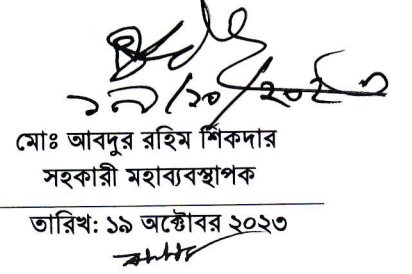 ১৯/১০/২০২৩
মোঃ আবদুর রহিম শিকদার
সহকারী মহাব্যবস্থাপক
তারিখ: ১৯ অক্টোবর ২০২৩